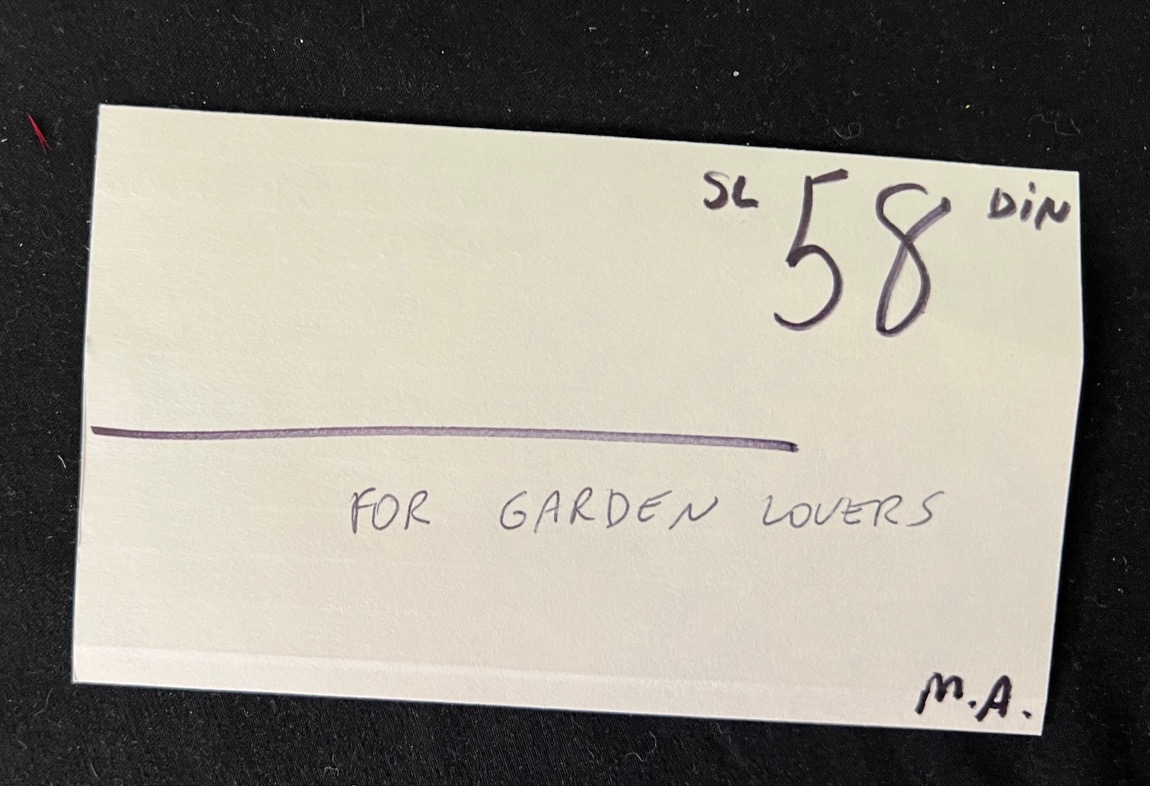 SL 58 DiN
FOR GARDEN LOVERS
M.A.